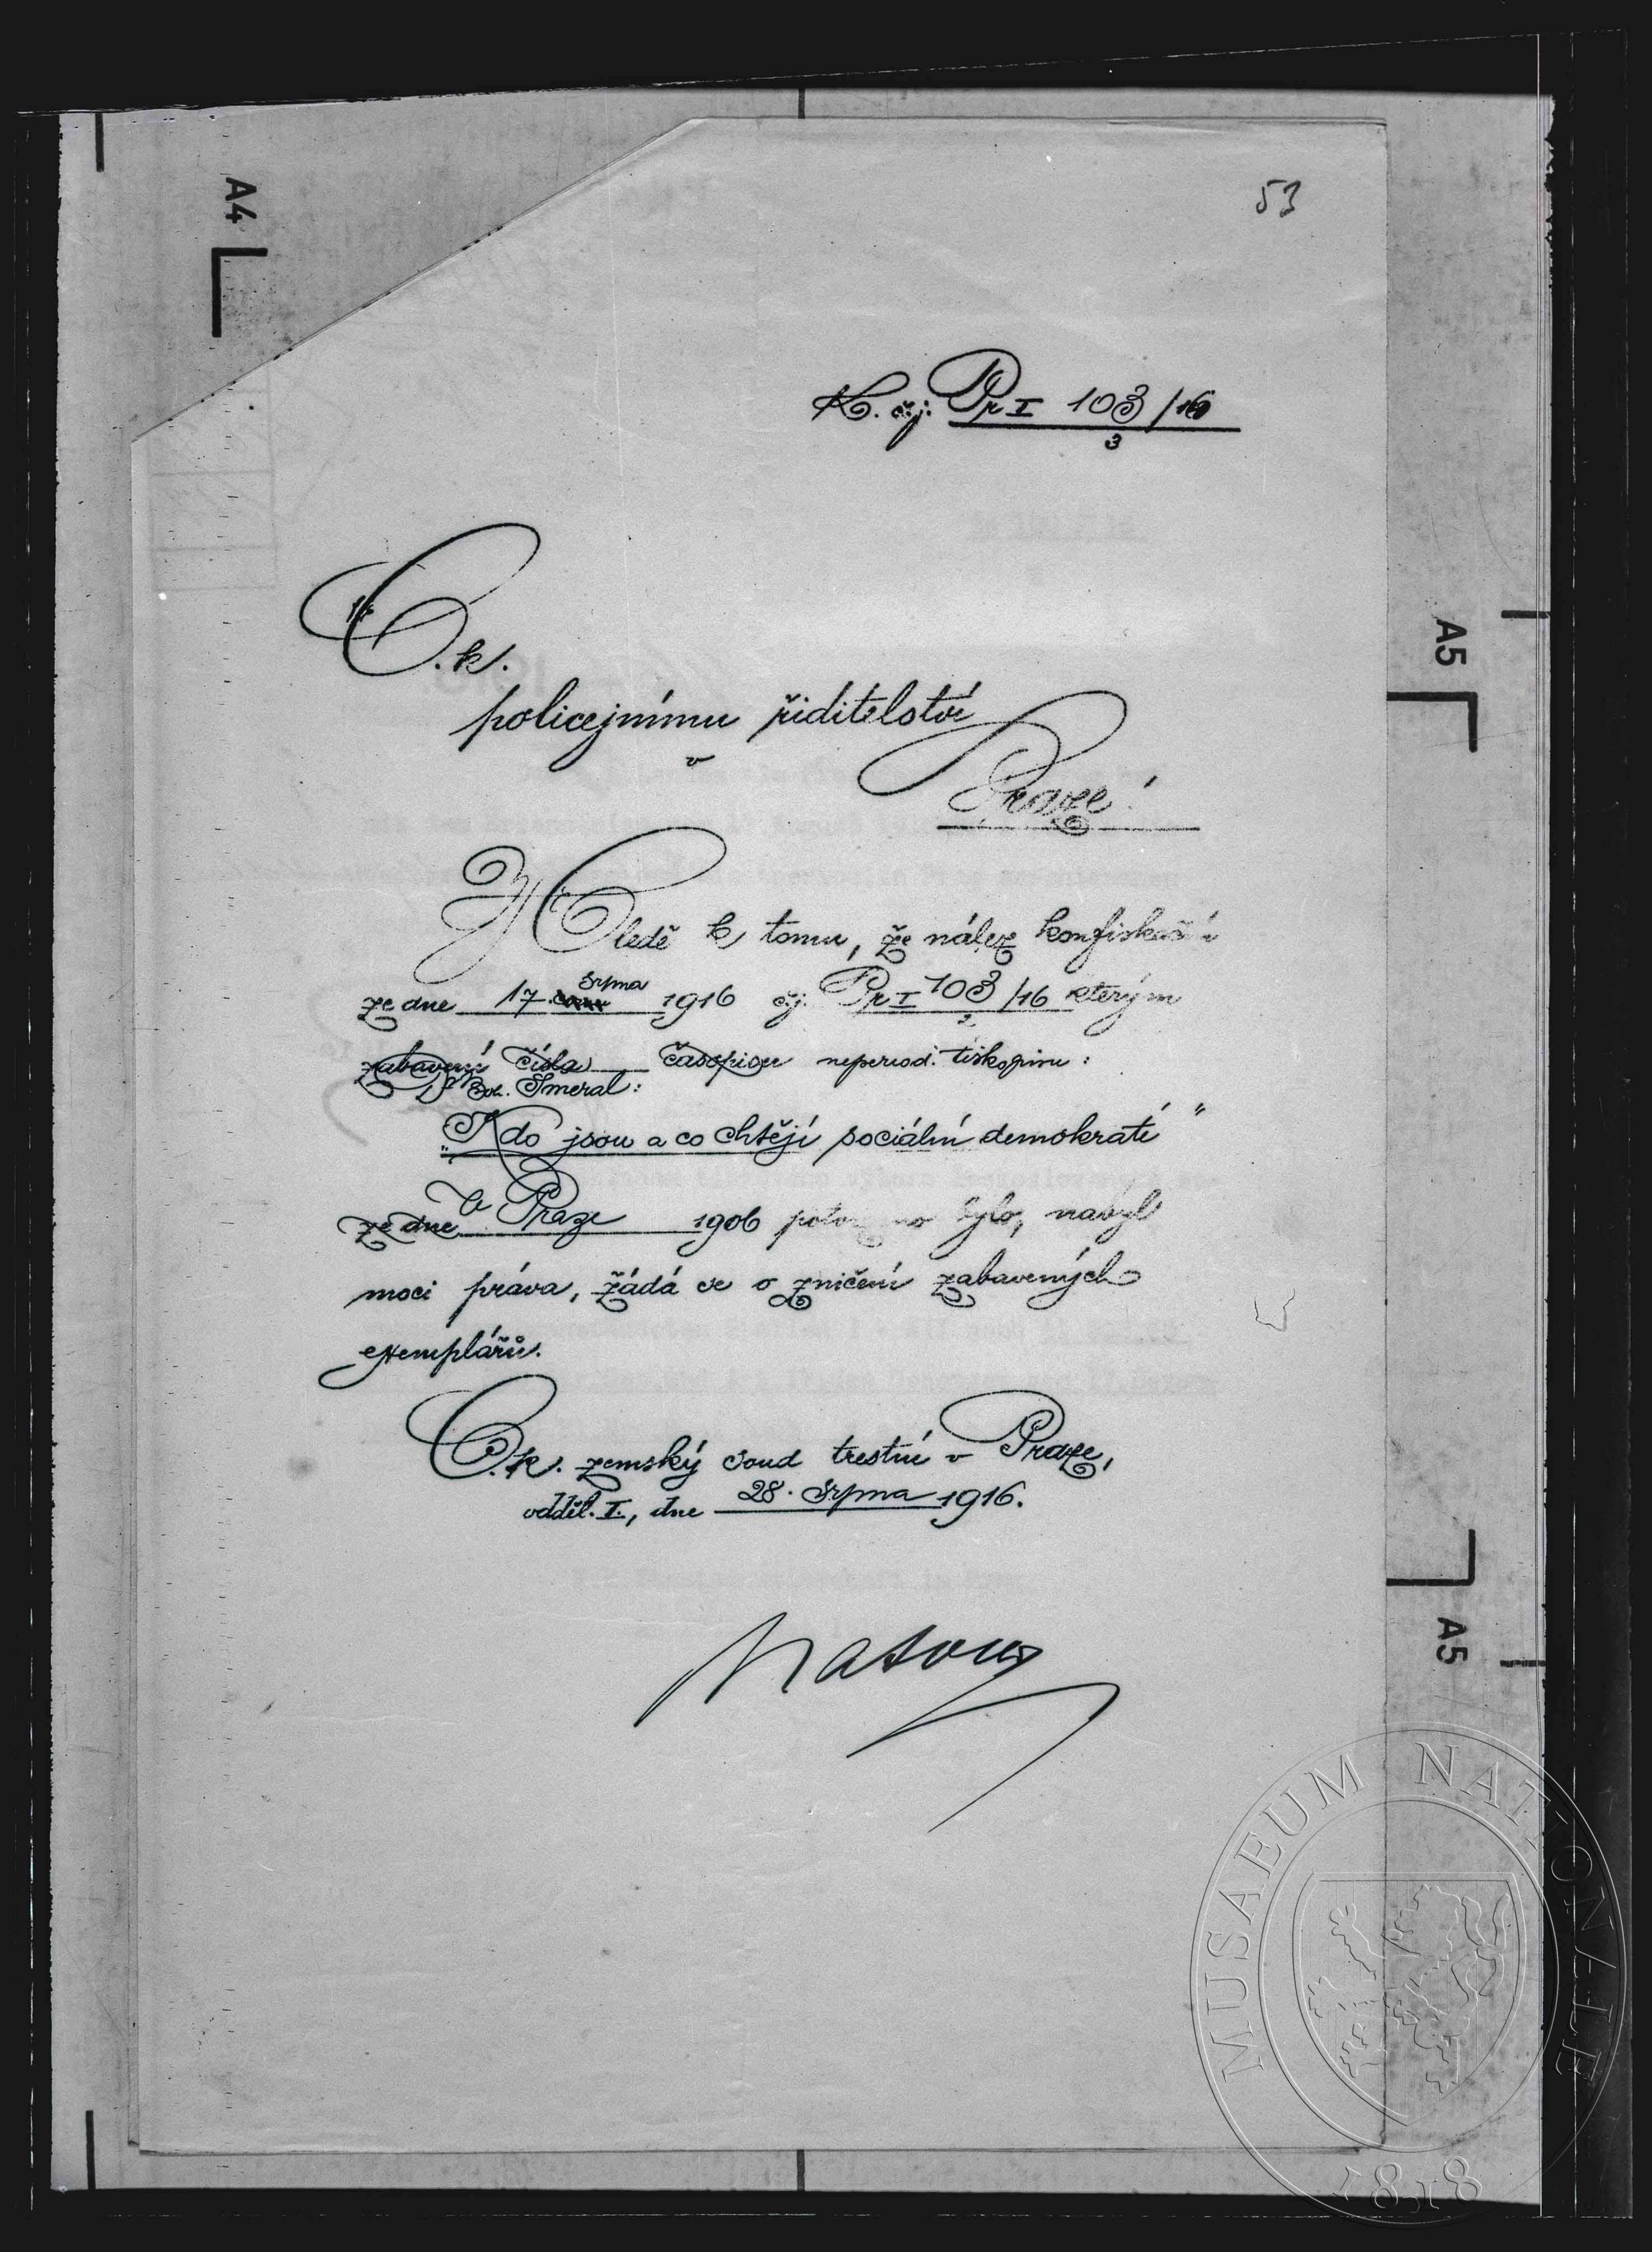 53
K. čj. Pr I 103/16
3
C. k.
policejnímu řiditelství
v
Praze!
Hledě k tomu, že nález konfiskační
ze dne 17. srpna 1916 čj. Pr I 103/16 kterým
2
zabavení čísla časopisu neperiod. tiskopisu:
Dr Boh. Šmeral:
„Kdo jsou a co chtějí sociální demokraté"
ze dne v Praze 1906 potvrzeno bylo, nabyl
moci práva, žádá se o zničení zabavených
exemplářů.
C. k. zemský soud trestní v Praze,
odděl. I., dne 28. srpna 1916.
A4
A5
A5
MUSAEUM NATIONALE
1818